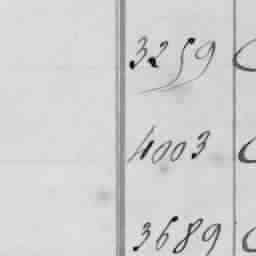 3259
4003
3689